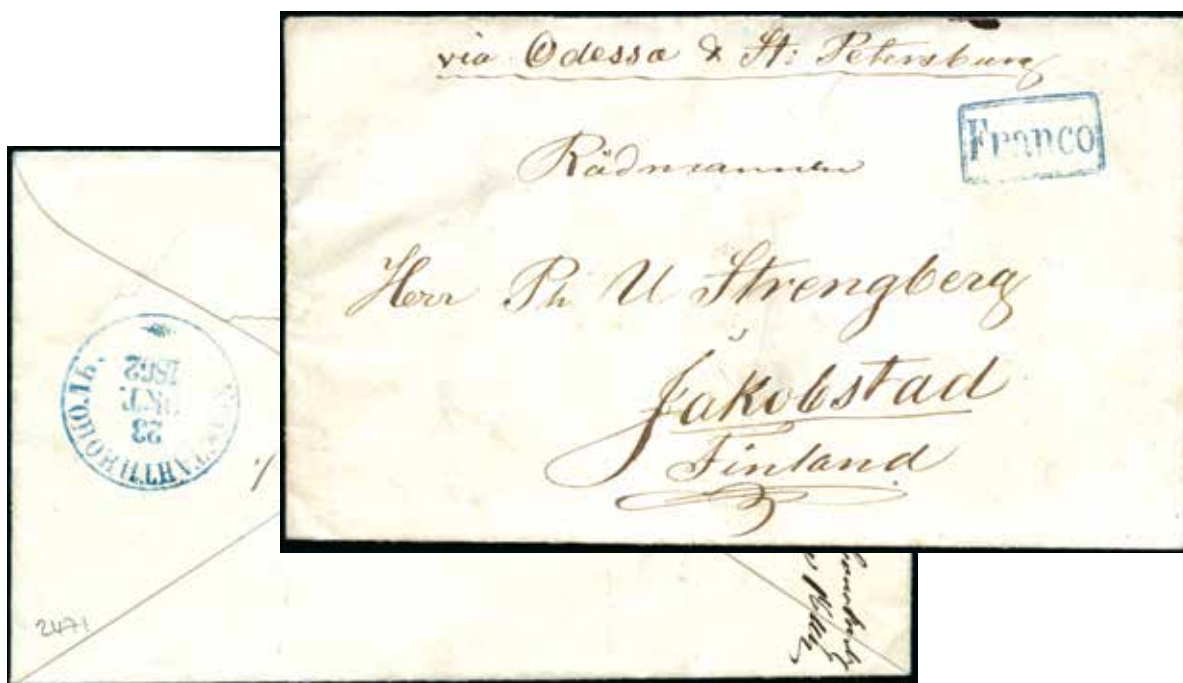 via Odessa & St: Petersburg
Franco
Rådmannen
Herr Ph U Strengberg
Jakobstad
Finland
КОНСТАНТИНОПОЛЬ.
23
ОКТ.
1862
2471